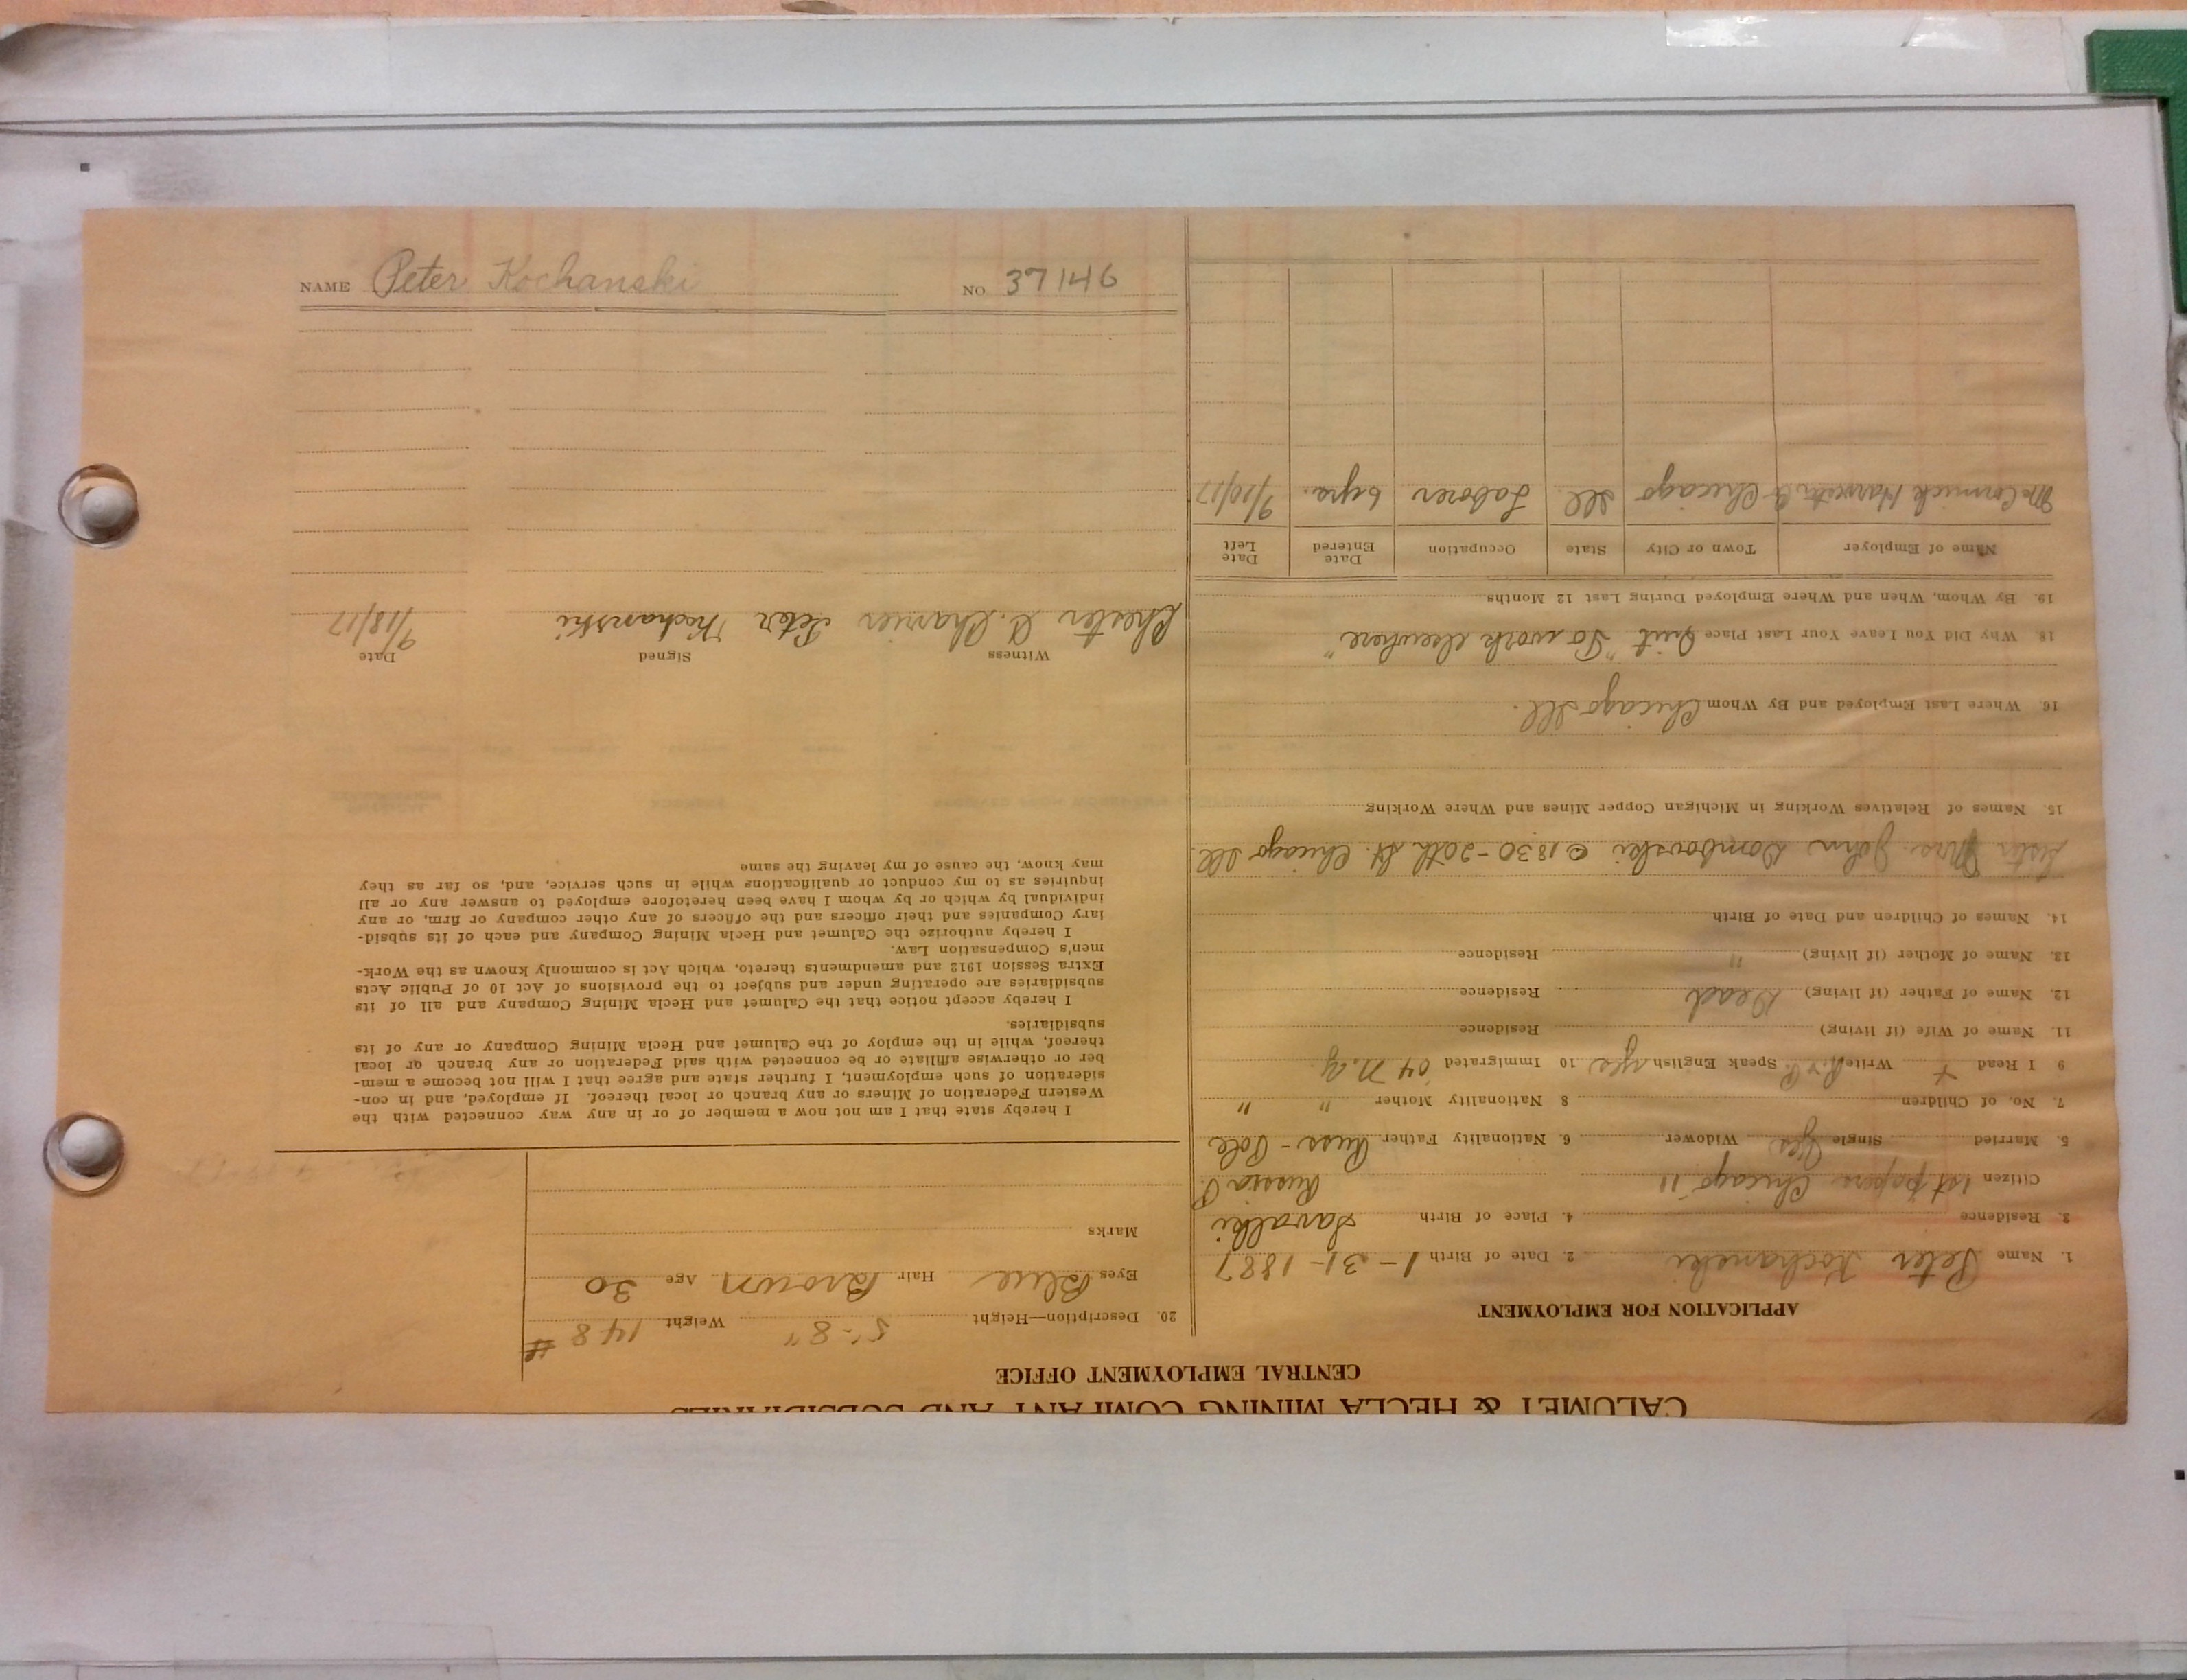 NAME Peter Kochanski NO. 37146
CALUMET & HECLA MINING COMPANY AND SUBSIDIARIES
CENTRAL EMPLOYMENT OFFICE
APPLICATION FOR EMPLOYMENT
1. Name Peter Kochanski 2. Date of Birth 1-31-1887
3. Residence 4. Place of Birth Suvalki
Citizen 1st papers Chicago " Russia P.
5. Married Single Yes Widower 6. Nationality Father Russ-Pole
7. No. of Children 8 Nationality Mother " "
9 I Read + Write R & P. Speak English yes 10 Immigrated '04 N.Y.
11. Name of Wife (if living) Residence
12. Name of Father (if living) Dead Residence
13. Name of Mother (if living) " Residence
14. Names of Children and Date of Birth
Sister Mrs. John Dombowski @ 1830-20th St. Chicago Ill.
15. Names of Relatives Working in Michigan Copper Mines and Where Working
16. Where Last Employed and By Whom Chicago Ill.
18. Why Did You Leave Your Last Place Quit "To work elsewhere"
19. By Whom, When and Where Employed During Last 12 Months
Name of Employer Town or City State Occupation Date Entered Date Left
McCormick Harvester Co Chicago Ill. Laborer 6 yrs. 9/10/17
20. Description—Height 5'-8" Weight 148 #
Eyes Blue Hair Brown Age 30
Marks
I hereby state that I am not now a member of or in any way connected with the
Western Federation of Miners or any branch or local thereof. If employed, and in con-
sideration of such employment, I further state and agree that I will not become a mem-
ber or otherwise affiliate or be connected with said Federation or any branch or local
thereof, while in the employ of the Calumet and Hecla Mining Company or any of its
subsidiaries.
I hereby accept notice that the Calumet and Hecla Mining Company and all of its
subsidiaries are operating under and subject to the provisions of Act 10 of Public Acts
Extra Session 1912 and amendments thereto, which Act is commonly known as the Work-
men's Compensation Law.
I hereby authorize the Calumet and Hecla Mining Company and each of its subsid-
iary Companies and their officers and the officers of any other company or firm, or any
individual by which or by whom I have been heretofore employed to answer any or all
inquiries as to my conduct or qualifications while in such service, and, so far as they
may know, the cause of my leaving the same
Witness Signed Date
Chester A. Charrier Peter Kochanski 9/18/17